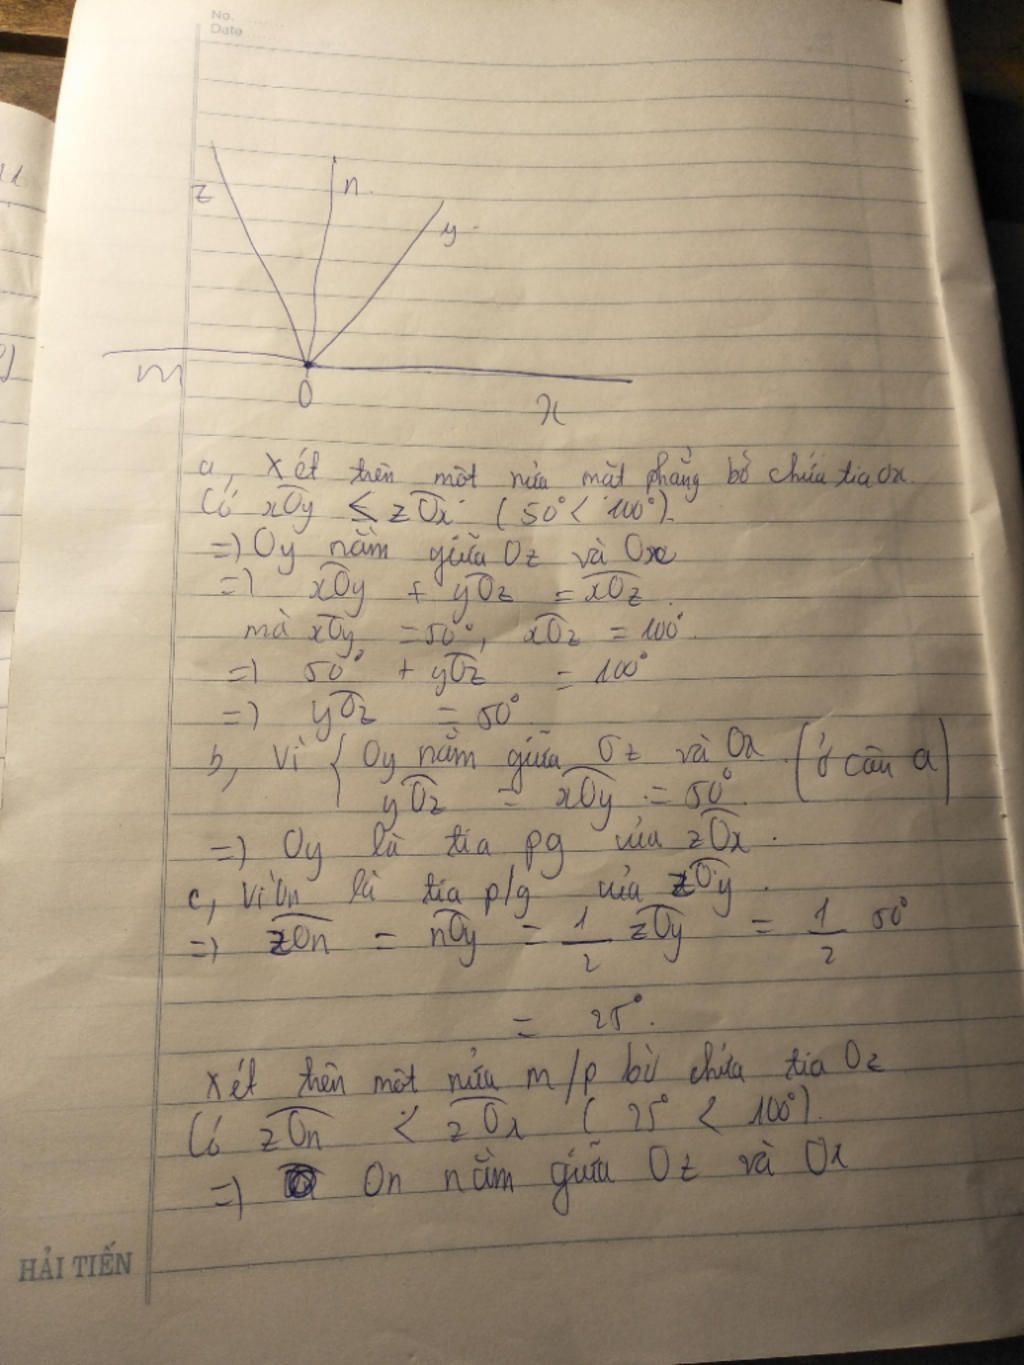 No.
Date
z
n
y
m
O
x
a, Xét trên một nửa mặt phẳng bờ chứa tia Ox.
Có xOy ≤ zOx (50° < 100°).
=) Oy nằm giữa Oz và Ox
=) xOy + yOz = xOz.
mà xOy = 50°, xOz = 100°.
=) 50° + yOz = 100°
=) yOz = 50°.
b, Vì { Oy nằm giữa Oz và Ox (ở câu a)
yOz = xOy = 50°.
=) Oy là tia pg của zOx.
c, Vì On là tia p/g của zOy.
=) zOn = nOy = 1/2 zOy = 1/2 50°
= 25°.
Xét trên một nửa m/p bờ chứa tia Oz
Có zOn < zOx (25° < 100°).
=) On nằm giữa Oz và Ox
HẢI TIẾN